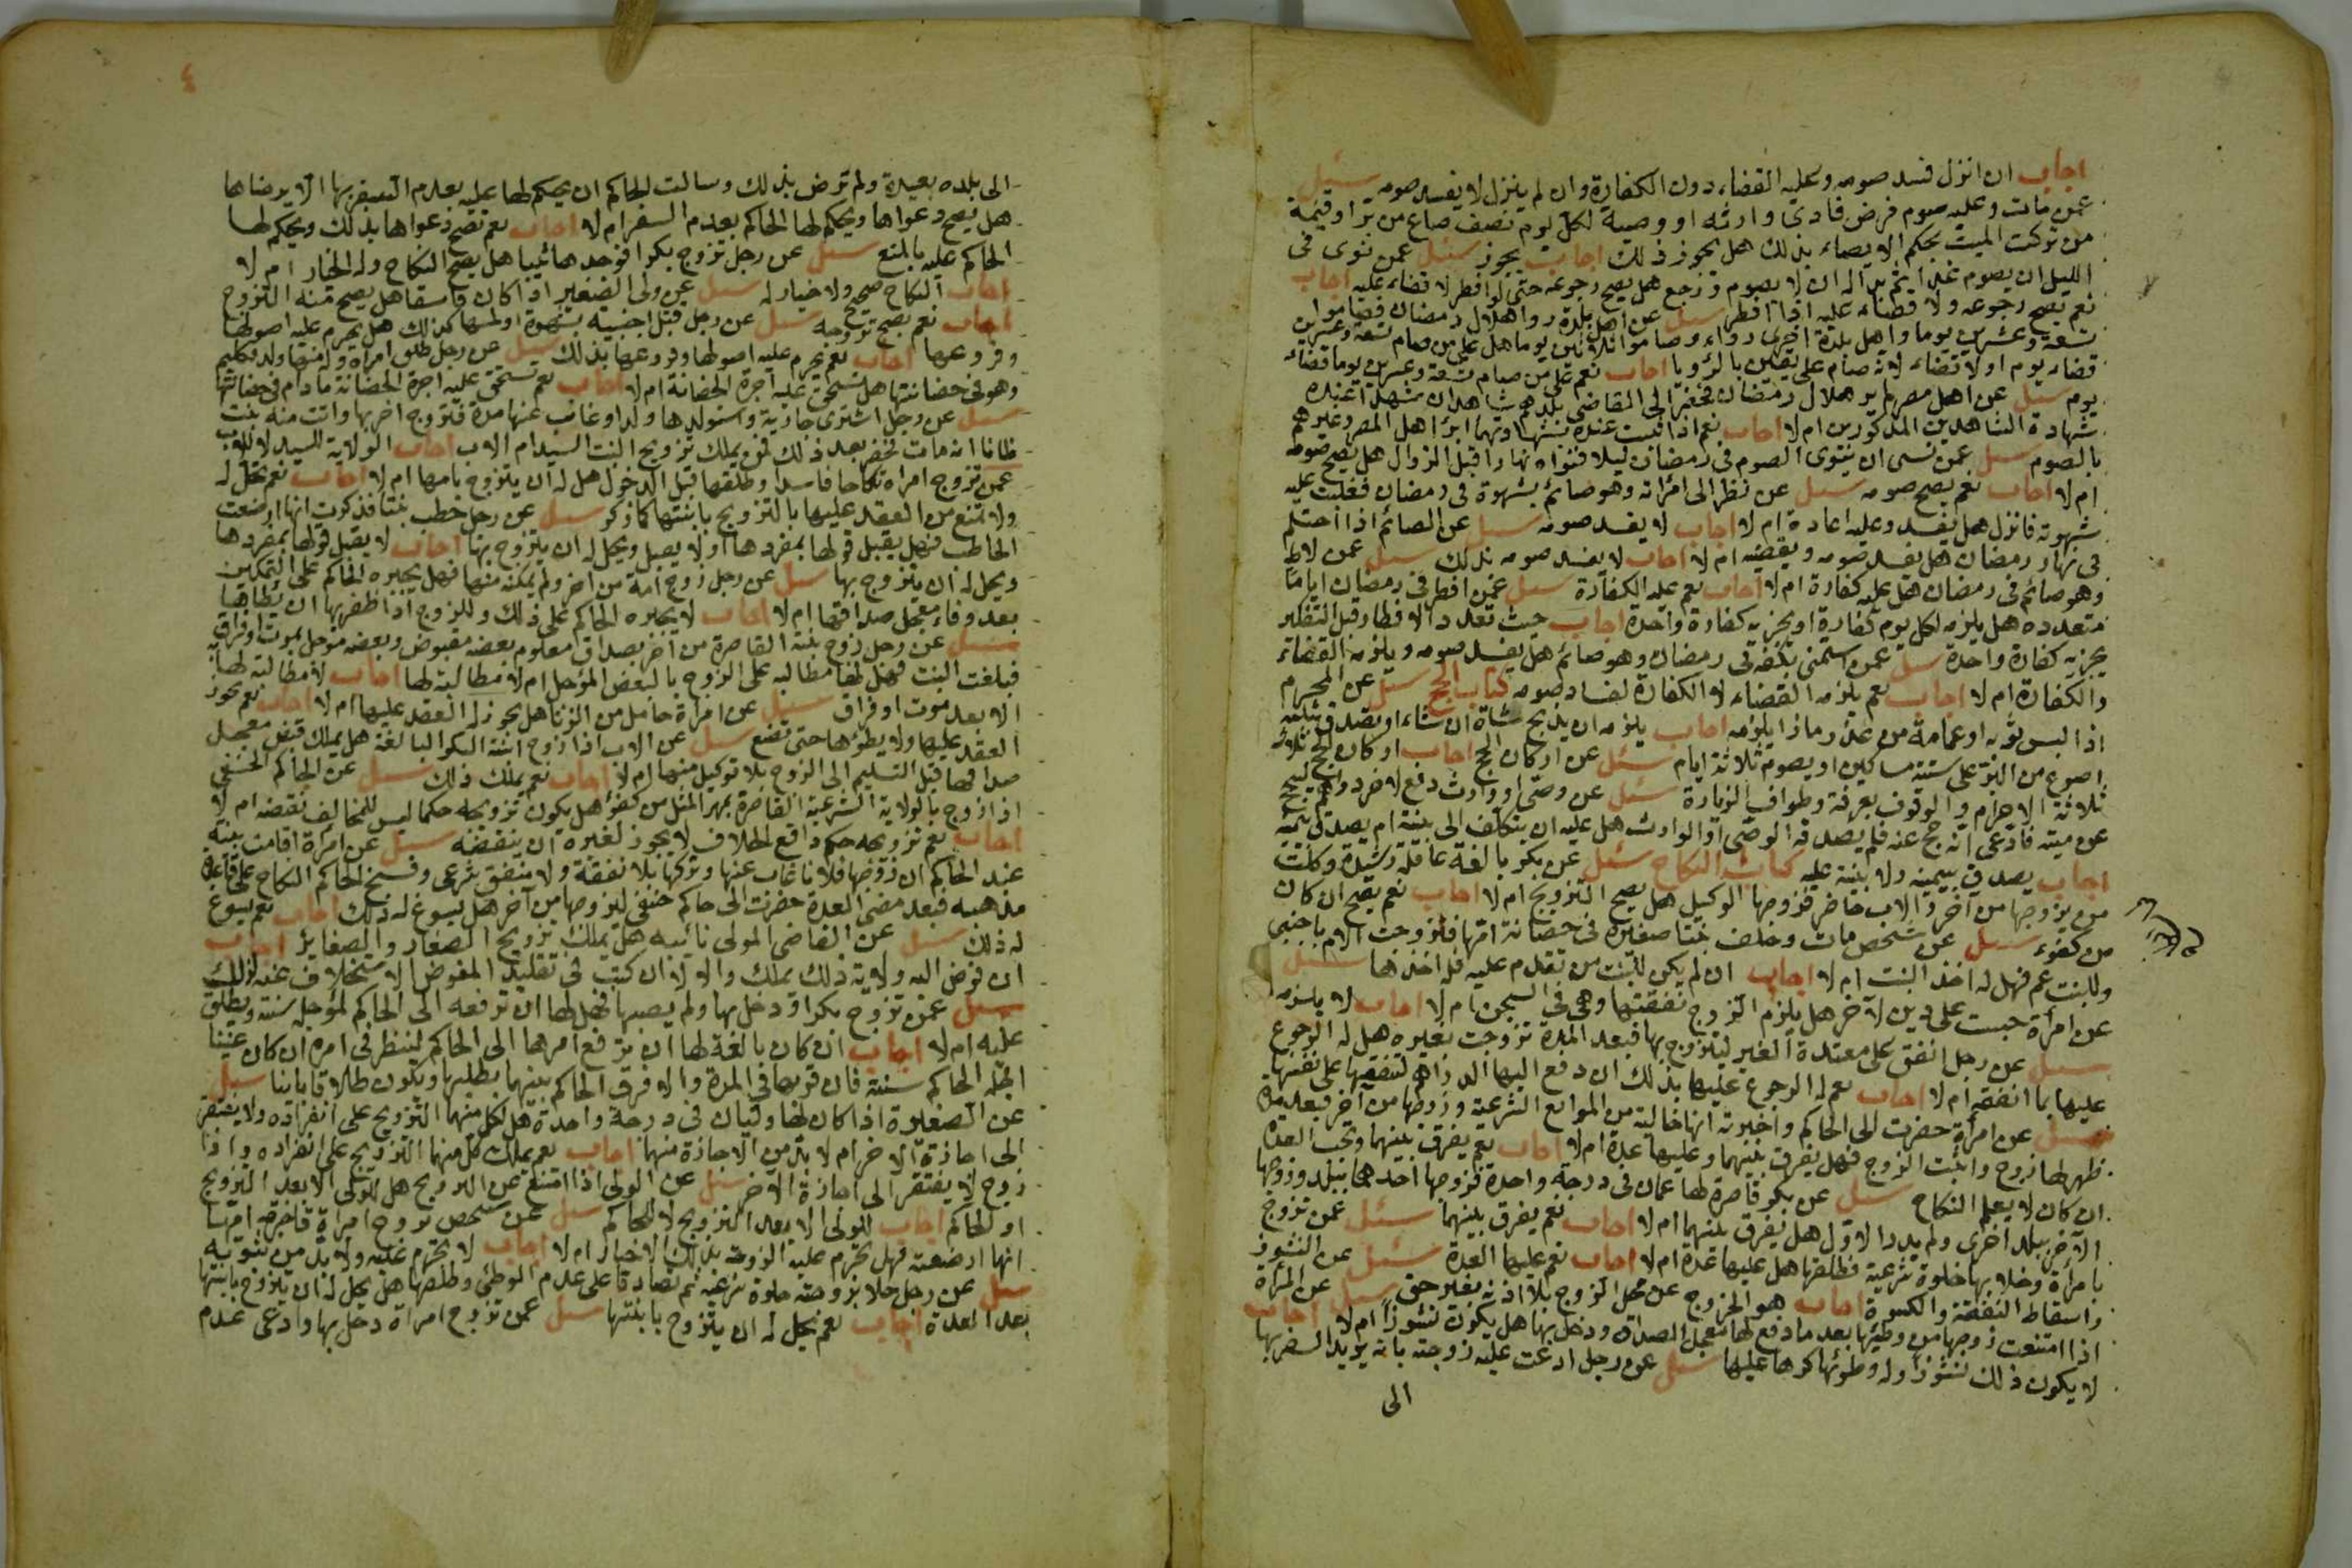 اجاب ان انزل فسد صومه وعليه القضاء دون الكفارة وان لم ينزل لا يفسد صومه سئل
عمن مات وعليه صوم فرض فادى وارثه او وصيه لكل يوم نصف صاع من بر او قيمة
من تركت الميت بحكم الايصاء بذلك هل يجوز ذلك اجاب يجوز سئل عمن نوى فى
الليل ان يصوم غدا ثم بدا له ان لا يصوم ورجع هل يصح رجوعه حتى لو افطر لا قضاء عليه اجاب
نعم يصح رجوعه ولا قضاء عليه اذا افطر سئل عن اهل بلدة رواهلال رمضان فصاموا
تسعة وعشرين يوما واهل بلدة اخرى رواء وصاموا ثلاثين يوما هل على من صام تسعة وعشرين
قضاء يوم اولا قضاء لانه صام على يقين بالرؤيا اجاب نعم على من صام تسعة وعشرين يوما قضاء
يوم سئل عن اهل مصر لم ير هلال رمضان فحضر الى القاضى بلدهم شاهدان شهدا عنده
شهادة الشاهدين المذكورين ام لا اجاب نعم اذا ثبت عنده اهل المصر وغيرهم
بالصوم سئل عمن نسى ان ينوى الصوم فى رمضان ليلا فنواه نهارا قبل الزوال هل يصح صومه
ام لا اجاب نعم يصح صومه سئل عن نظر الى امراته وهو صائم بشهوة فى رمضان فغلبت عليه
شهوته فانزل هل يفسد وعليه اعادة ام لا اجاب لا يفسد صومه سئل عن الصائم اذا احتلم
فى نهار رمضان هل يفسد صومه ويقضيه ام لا اجاب لا يفسد صومه بذلك سئل عمن لاط
وهو صائم فى رمضان هل عليه كفارة ام لا اجاب نعم عليه الكفارة سئل عمن افطر فى رمضان اياما
متعدده هل يلزمه لكل يوم كفارة او يجزيه كفارة واحدة اجاب حيث تعدد الافطار قبل التكفير
يجزيه كفارة واحدة سئل عمن استمنى بكفه فى رمضان وهو صائم هل يفسد صومه ويلزمه القضاء
والكفارة ام لا اجاب نعم يلزمه القضاء لا الكفارة لفساد صومه كتاب الحج سئل عن المحرم
اذا لبس ثوبه او عمامة من عذر ماذا يلزمه اجاب يلزمه ان يذبح شاة ان شاء او يتصدق بثلثة
اصوع من البر على ستة مساكين او يصوم ثلاثة ايام سئل عن اركان الحج اجاب اركان الحج ثلاثة
ثلاثة الاحرام والوقوف بعرفة وطواف الزيارة سئل عن وصى او وارث دفع لاخر دراهم ليحج
عن ميته فادعى انه حج عنه فلم يصدقه الوصى او الوارث هل عليه ان يتكلف الى بينة ام يصدق بيمينه
اجاب يصدق بيمينه ولا بينة عليه كتاب النكاح سئل عن بكر بالغة عاقلة رشيدة وكلت
من يزوجها من آخر والاب حاضر فزوجها الوكيل هل يصح التزويج ام لا اجاب نعم يصح ان كان
من كفوء سئل عن شخص مات وخلف بنتا صغيرة فى حضانة امها فتزوجت الام باجنبى
وللبنت عم فهل له اخذ البنت ام لا اجاب ان لم يكن للبنت من تقدم عليه فله اخذها سئل
عن امرأة حبست على دين لآخر هل يلزم الزوج نفقتها وهى فى السجن ام لا اجاب لا يلزمه
سئل عن رجل انفق على معتدة الغير ليتزوج بها فبعد المدة تزوجت بغيره هل له الرجوع
عليها بما انفقه ام لا اجاب نعم له الرجوع عليها بذلك ان دفع اليها الدراهم لتنفقها على نفسها
سئل عن امرأة حضرت الى الحاكم واخبرته انها خالية من الموانع الشرعية وزوجها من آخر فبعد مدة
ظهر لها زوج واثبت الزوج فهل يفرق بينهما وعليها عدة ام لا اجاب نعم يفرق بينهما وتجب العدة
ان كان لا يعلم النكاح سئل عن بكر قاصرة لها عمان فى درجة واحدة فزوجها احدهما ببلد وزوجها
الآخر ببلد اخرى ولم يدر الاول هل يفرق بينهما ام لا اجاب نعم يفرق بينهما سئل عمن تزوج
بامرأة وخلا بها خلوة شرعية فطلقها هل عليها عدة ام لا اجاب نعم عليها العدة سئل عن النشوز
واسقاط النفقة والكسوة اجاب هو الخروج عن محل الزوج بلا اذنه بغير حق سئل عن المرأة
اذا امتنعت زوجها من وطئها بعد ما دفع لها معجل الصداق ودخل بها هل يكون نشوزا ام لا اجاب
لا يكون ذلك نشوزا وله وطؤها كرها عليها سئل عن رجل ادعت عليه زوجته بانه يريد السفر بها
الى
٤
الى بلده بعيدة ولم ترض بذلك وسالت الحاكم ان يحكم لها عليه بعدم السفر بها الا برضاها
هل يصح دعواها ويحكم لها الحاكم بعدم السفر ام لا اجاب نعم تصح دعواها بذلك ويحكم لها
الحاكم عليه بالمنع سئل عن رجل تزوج بكرا فوجدها ثيبا هل يصح النكاح وله الخيار ام لا
اجاب النكاح صحيح ولا خيار له سئل عن ولى الصغير اذا كان فاسقا هل يصح منه التزوج
اجاب نعم يصح تزوجه سئل عن رجل قبل اجنبية بشهوة او لمسها كذلك هل يحرم عليه اصولها
وفروعها اجاب نعم يحرم عليه اصولها وفروعها بذلك سئل عن رجل طلق امراة وله منها ولد فطيم
وهو فى حضانتها هل تستحق عليه اجرة الحضانة ام لا اجاب نعم تستحق عليه اجرة الحضانة مادام فى حضانتها
سئل عن رجل اشترى جارية واستولدها ولدا وغاب عنها مدة فتزوج اخر بها واتت منه بنت
ظانا انه مات فحضر بعد ذلك فمن يملك تزويج البنت السيد ام الاب اجاب الولاية للسيد لا للاب
عمن تزوج امراة نكاحا فاسدا وطلقها قبل الدخول هل له ان يتزوج بامها ام لا اجاب نعم يحل له
ولا تمنع من العقد عليها بالتزويج بابنتها كما ذكر سئل عن رجل خطب بنتا فذكرت انها ارضعت
الخاطب فهل يقبل قولها بمفردها او لا يقبل ويحل له ان يتزوج بها اجاب لا يقبل قولها بمفردها
ويحل له ان يتزوج بها سئل عن رجل زوج امة من آخر ولم يمكنه منها فهل يجبره الحاكم على التمكين
بعد وفاء معجل صداقها ام لا اجاب لا يجبره الحاكم على ذلك وللزوج اذا ظفر بها ان يطاها
سئل عن رجل زوج بنته القاصرة من آخر بصداق معلوم بعضه مقبوض وبعضه مؤجل بموت او فراق
فبلغت البنت فهل لها مطالبه على الزوج بالبعض المؤجل ام لا مطالبة لها اجاب لا مطالبة لها
الا بعد موت او فراق سئل عن امراة حامل من الزنا هل يجوز له العقد عليها ام لا اجاب نعم يجوز
العقد عليها ولا يطؤها حتى تضع سئل عن الاب اذا زوج ابنته البكر البالغة هل يملك قبض معجل
صداقها قبل التسليم الى الزوج بلا توكيل منها ام لا اجاب نعم يملك ذلك سئل عن الحاكم الحنفى
اذا زوج بالولاية الشرعية القاصرة بمهر المثل من كفؤ هل يكون تزويجه حكما ليس للمخالف نقضه ام لا
اجاب نعم تزويجه حكم رافع الخلاف لا يجوز لغيره ان ينقضه سئل عن امراة اقامت بينة
عند الحاكم ان زوجها فلانا غاب عنها وتركها بلا نفقة ولا منفق شرعى وفسخ الحاكم النكاح على قاعدة
مذهبه فبعد مضى العدة حضرت الى حاكم حنفى ليزوجها من آخر هل يسوغ له ذلك اجاب نعم يسوغ
له ذلك سئل عن القاضى المولى نائبه هل يملك تزويج الصغار والصغاير اجاب
ان فوض اليه ولاية ذلك يملك والا لا ان كتب فى تقليد المفوض الاستخلاف عنه لذلك
سئل عمن تزوج بكرا ودخل بها ولم يصبها فهل لها ان ترفعه الى الحاكم لمؤجله سنة ويطلق
عليه ام لا اجاب ان كان بالغة لها ان ترفع امرها الى الحاكم لينظر فى امره ان كان عنينا
اجله الحاكم سنة فان قربها فى المدة والا فرق الحاكم بينهما بطلبها ويكون طلاقا باينا سئل
عن الصغيرة اذا كان لها وليان فى درجة واحدة هل لكل منهما التزويج على انفراده ولا يفتقر
الى اجازة الاخر ام لا بد من الاجازة منهما اجاب نعم يملك كل منهما التزويج على انفراده واذا
زوج لا يفتقر الى اجازة الاخر سئل عن الولى اذا امتنع عن التزويج هل للولى الابعد التزويج
او الحاكم اجاب للولى الابعد التزويج لا للحاكم سئل عن شخص تزوج امراة فاخبرته امها
انها ارضعته فهل تحرم عليه الزوجة بذلك الاخبار ام لا اجاب لا تحرم عليه ولا بد من ثبوته
سئل عن رجل خلا بزوجته خلوة شرعية ثم تصادقا على عدم الوطئ وطلقها هل يحل له ان يتزوج بابنتها
بعد العدة اجاب نعم يحل له ان يتزوج بابنتها سئل عمن تزوج امراة دخل بها وادعى عدم